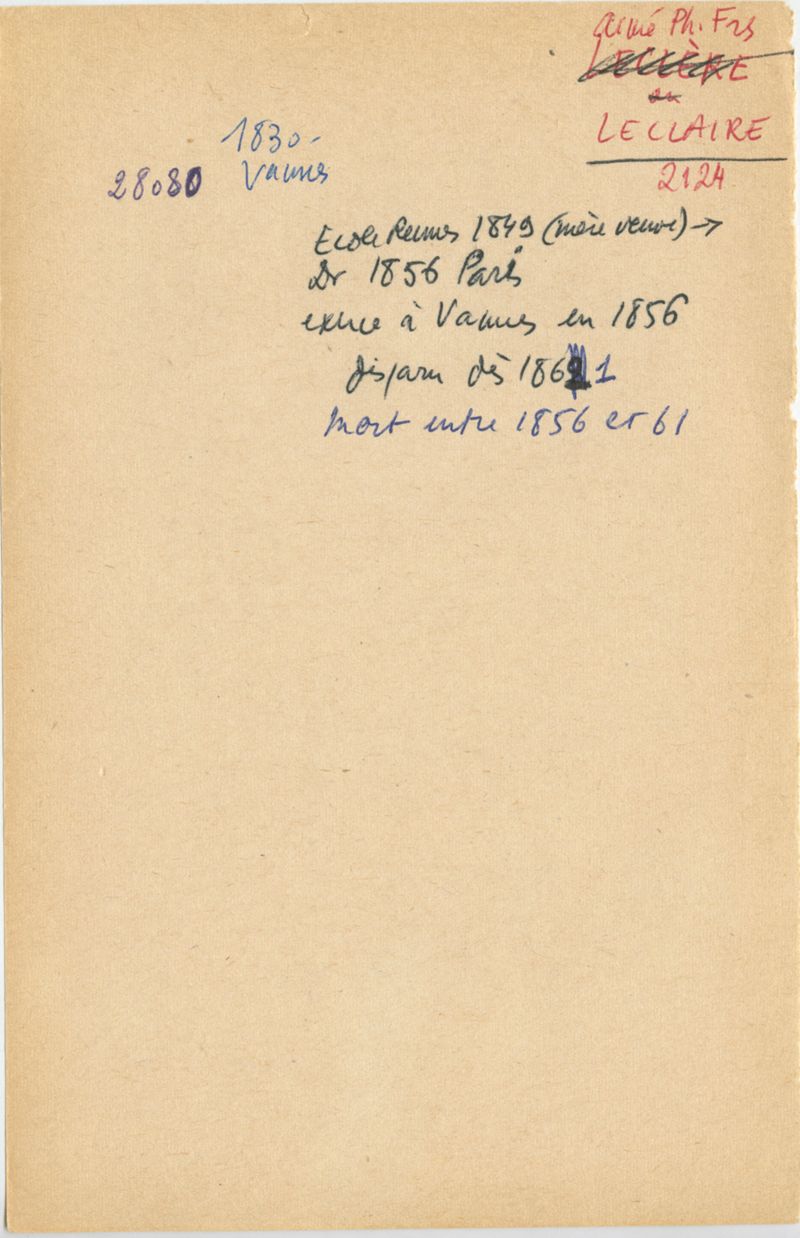 Aimé Ph. Frs
LECLÈRE
ou
LECLAIRE
2124
1830-
28080 Vannes
Ecole Rennes 1849 (mère veuve) →
Dr 1856 Paris
exerce à Vannes en 1856
disparu dès 1861
Mort entre 1856 et 61